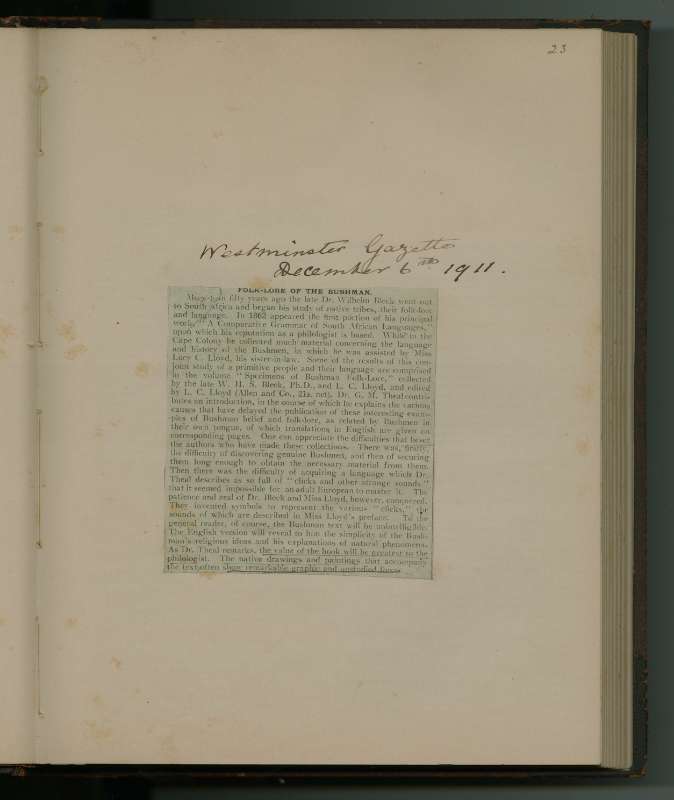 23
Westminster Gazette
December 6th 1911.
FOLK-LORE OF THE BUSHMAN.
More than fifty years ago the late Dr. Wilhelm Bleek went out
to South Africa and began his study of native tribes, their folk-lore
and language. In 1862 appeared the first portion of his principal
work, "A Comparative Grammar of South African Languages,"
upon which his reputation as a philologist is based. While in the
Cape Colony he collected much material concerning the language
and history of the Bushmen, in which he was assisted by Miss
Lucy C. Lloyd, his sister-in-law. Some of the results of this con-
joint study of a primitive people and their language are comprised
in the volume "Specimens of Bushman Folk-Lore," collected
by the late W. H. S. Bleek, Ph.D., and L. C. Lloyd, and edited
by L. C. Lloyd (Allen and Co., 21s. net). Dr. G. M. Theal contri-
butes an introduction, in the course of which he explains the various
causes that have delayed the publication of these interesting exam-
ples of Bushman belief and folk-lore, as related by Bushmen in
their own tongue, of which translations in English are given on
corresponding pages. One can appreciate the difficulties that beset
the authors who have made these collections. There was, firstly,
the difficulty of discovering genuine Bushmen, and then of securing
them long enough to obtain the necessary material from them.
Then there was the difficulty of acquiring a language which Dr.
Theal describes as so full of "clicks and other strange sounds"
that it seemed impossible for an adult European to master it. The
patience and zeal of Dr. Bleek and Miss Lloyd, however, conquered.
They invented symbols to represent the various "clicks," the
sounds of which are described in Miss Lloyd's preface. To the
general reader, of course, the Bushman text will be unintelligible.
The English version will reveal to him the simplicity of the Bush-
man's religious ideas and his explanations of natural phenomena.
As Dr. Theal remarks, the value of the book will be greatest to the
philologist. The native drawings and paintings that accompany
the text often show remarkable graphic and unstudied force.